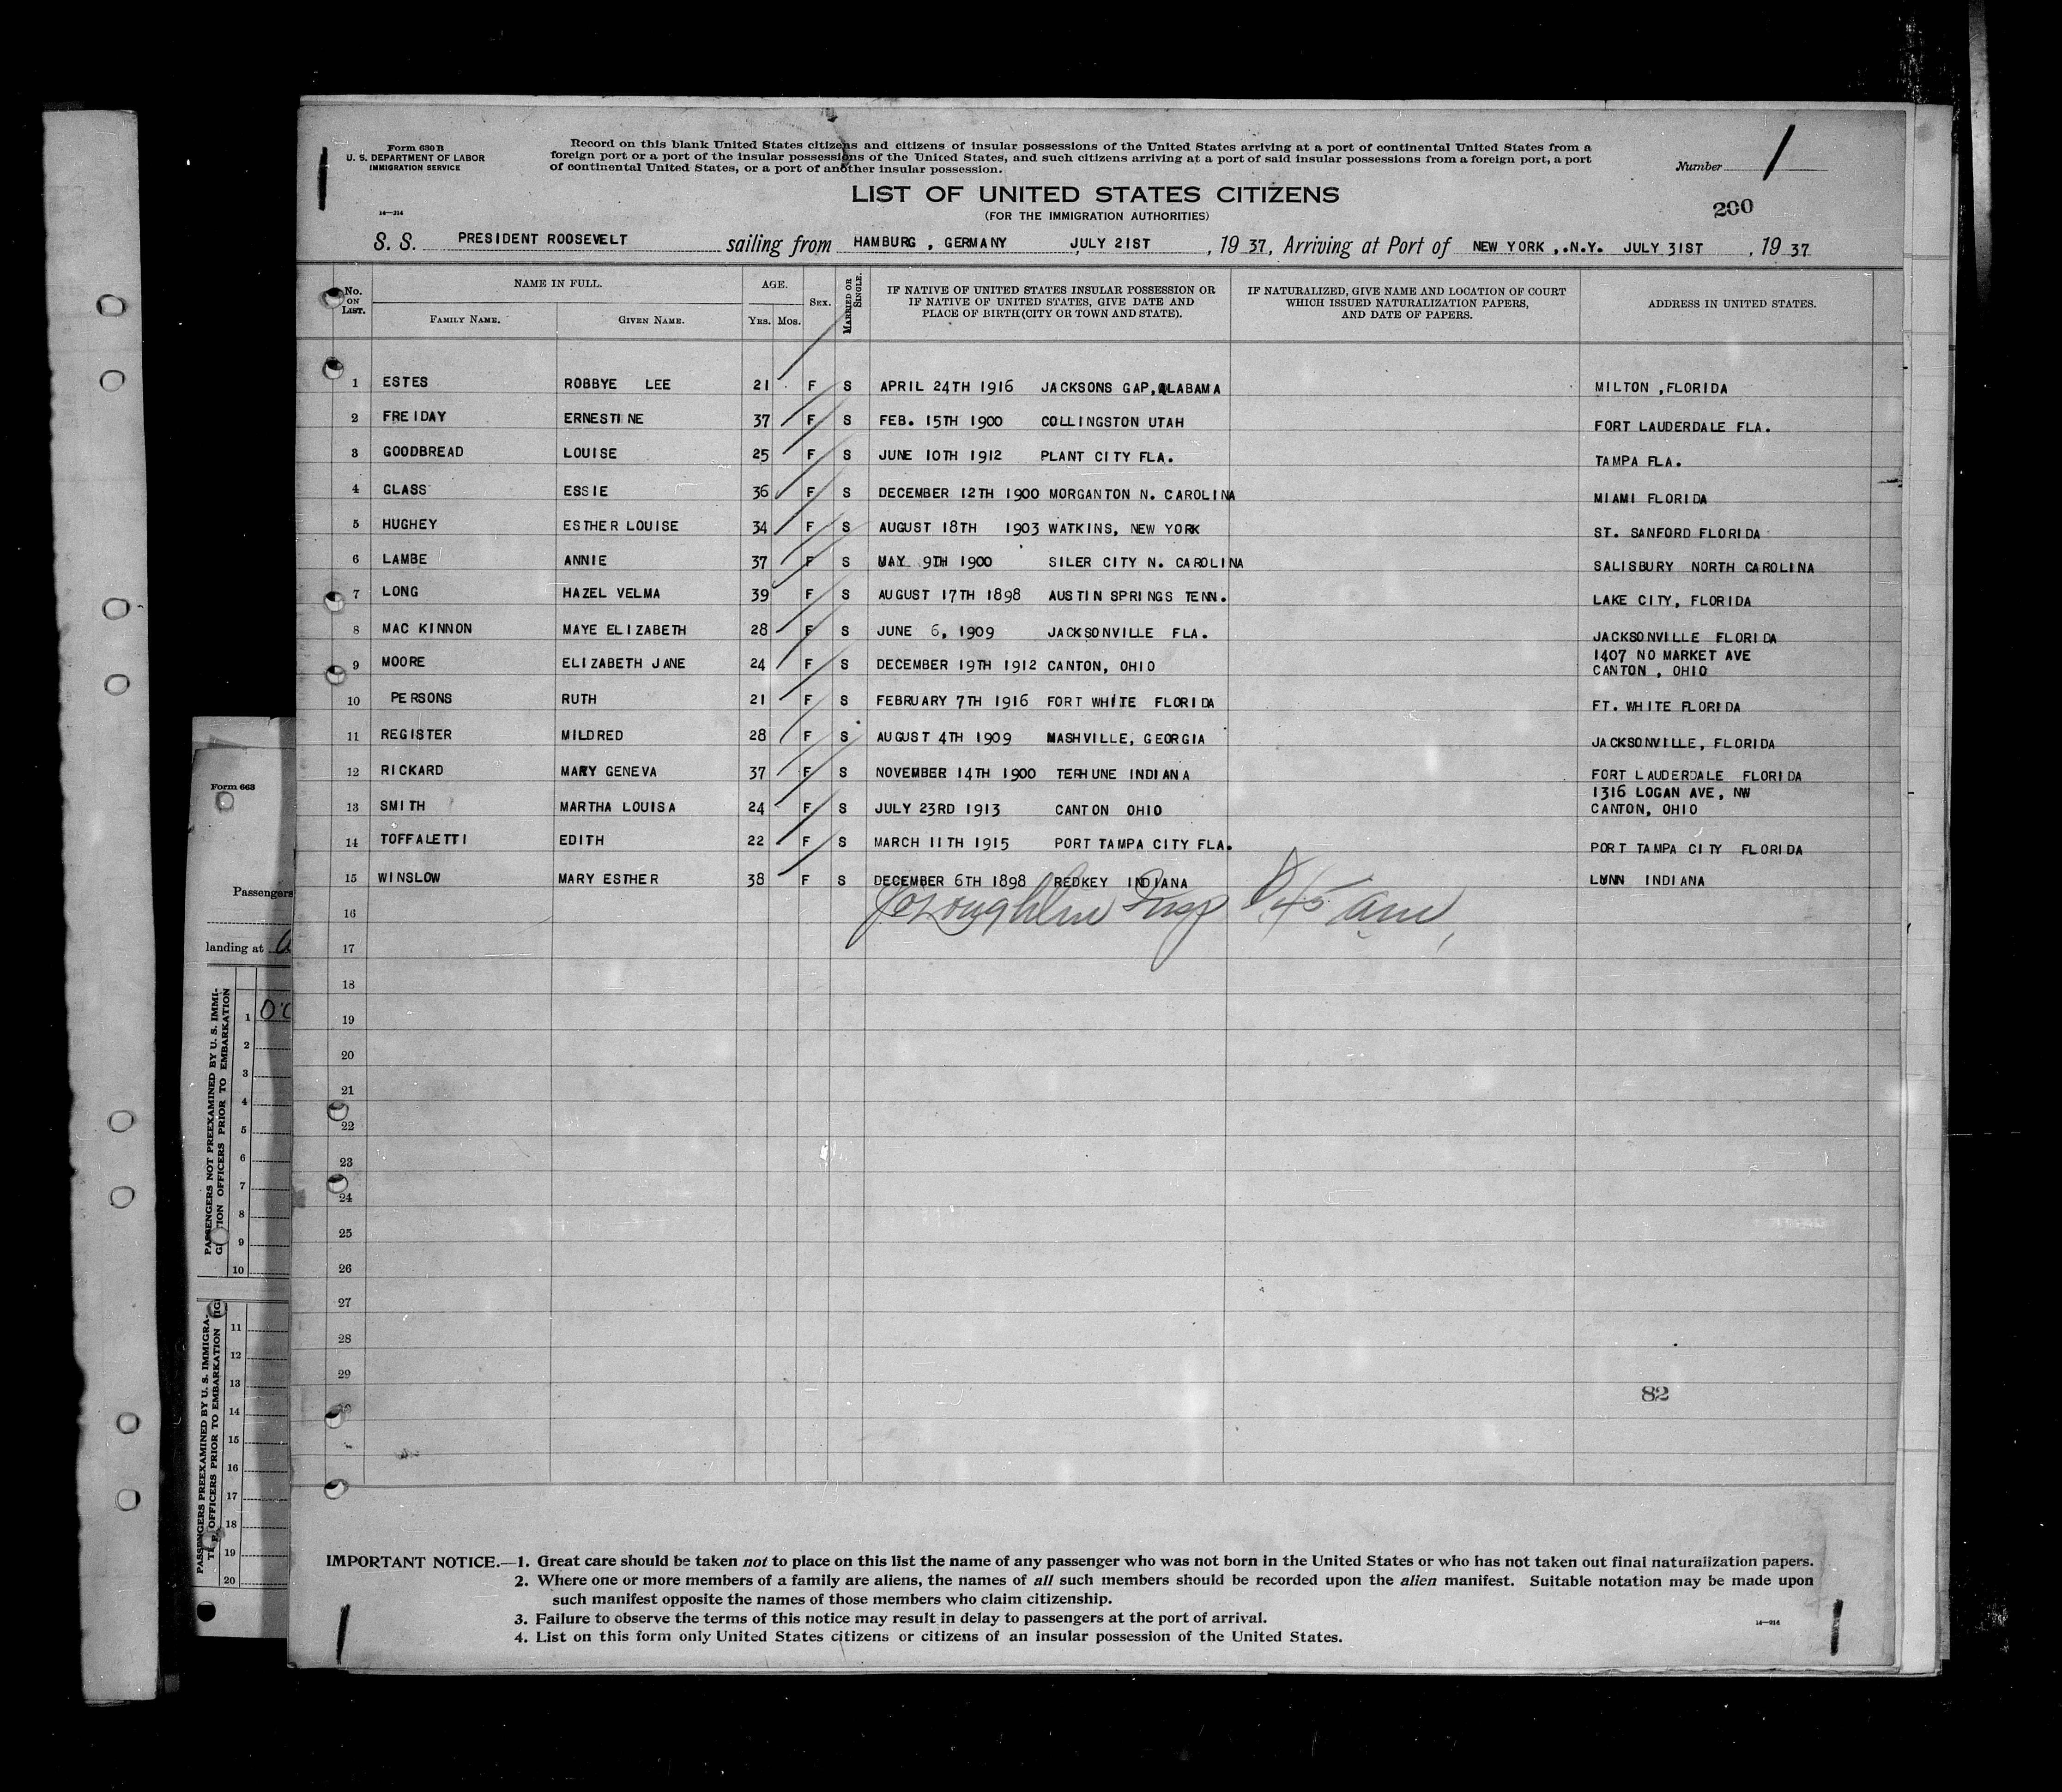 Form 630 B
U. S. DEPARTMENT OF LABOR
IMMIGRATION SERVICE
14—214
Record on this blank United States citizens and citizens of insular possessions of the United States arriving at a port of continental United States from a
foreign port or a port of the insular possessions of the United States, and such citizens arriving at a port of said insular possessions from a foreign port, a port
of continental United States, or a port of another insular possession.
Number 1
LIST OF UNITED STATES CITIZENS
(FOR THE IMMIGRATION AUTHORITIES)
200
S. S. PRESIDENT ROOSEVELT sailing from HAMBURG , GERMANY JULY 21ST , 19 37, Arriving at Port of NEW YORK ,.N.Y. JULY 31ST , 19 37
No. ON LIST. NAME IN FULL. FAMILY NAME. GIVEN NAME. AGE. YRS. MOS. SEX. MARRIED OR SINGLE. IF NATIVE OF UNITED STATES INSULAR POSSESSION OR IF NATIVE OF UNITED STATES, GIVE DATE AND PLACE OF BIRTH (CITY OR TOWN AND STATE). IF NATURALIZED, GIVE NAME AND LOCATION OF COURT WHICH ISSUED NATURALIZATION PAPERS, AND DATE OF PAPERS. ADDRESS IN UNITED STATES.
1 ESTES ROBBYE LEE 21 F S APRIL 24TH 1916 JACKSONS GAP, ALABAMA MILTON ,FLORIDA
2 FREIDAY ERNESTINE 37 F S FEB. 15TH 1900 COLLINGSTON UTAH FORT LAUDERDALE FLA.
3 GOODBREAD LOUISE 25 F S JUNE 10TH 1912 PLANT CITY FLA. TAMPA FLA.
4 GLASS ESSIE 36 F S DECEMBER 12TH 1900 MORGANTON N. CAROLINA MIAMI FLORIDA
5 HUGHEY ESTHER LOUISE 34 F S AUGUST 18TH 1903 WATKINS, NEW YORK ST. SANFORD FLORIDA
6 LAMBE ANNIE 37 F S MAY 9TH 1900 SILER CITY N. CAROLINA SALISBURY NORTH CAROLINA
7 LONG HAZEL VELMA 39 F S AUGUST 17TH 1898 AUSTIN SPRINGS TENN. LAKE CITY, FLORIDA
8 MAC KINNON MAYE ELIZABETH 28 F S JUNE 6, 1909 JACKSONVILLE FLA. JACKSONVILLE FLORIDA
9 MOORE ELIZABETH JANE 24 F S DECEMBER 19TH 1912 CANTON, OHIO 1407 NO MARKET AVE
CANTON , OHIO
10 PERSONS RUTH 21 F S FEBRUARY 7TH 1916 FORT WHITE FLORIDA FT. WHITE FLORIDA
11 REGISTER MILDRED 28 F S AUGUST 4TH 1909 NASHVILLE, GEORGIA JACKSONVILLE, FLORIDA
12 RICKARD MARY GENEVA 37 F S NOVEMBER 14TH 1900 TERHUNE INDIANA FORT LAUDERDALE FLORIDA
13 SMITH MARTHA LOUISA 24 F S JULY 23RD 1913 CANTON OHIO 1316 LOGAN AVE, NW
CANTON, OHIO
14 TOFFALETTI EDITH 22 F S MARCH 11TH 1915 PORT TAMPA CITY FLA. PORT TAMPA CITY FLORIDA
15 WINSLOW MARY ESTHER 38 F S DECEMBER 6TH 1898 REDKEY INDIANA LYNN INDIANA
16
17
18
19
20
21
22
23
24
25
26
27
28
29
82
IMPORTANT NOTICE.—1. Great care should be taken not to place on this list the name of any passenger who was not born in the United States or who has not taken out final naturalization papers.
2. Where one or more members of a family are aliens, the names of all such members should be recorded upon the alien manifest. Suitable notation may be made upon
such manifest opposite the names of those members who claim citizenship.
3. Failure to observe the terms of this notice may result in delay to passengers at the port of arrival.
4. List on this form only United States citizens or citizens of an insular possession of the United States.
14—214
Form 663
Passengers
landing at
PASSENGERS NOT PREEXAMINED BY U. S. IMMI-
OFFICERS PRIOR TO EMBARKATION
1
2
3
4
5
6
7
8
9
10
PASSENGERS PREEXAMINED BY U. S. IMMIGRA-
OFFICERS PRIOR TO EMBARKATION
11
12
13
14
15
16
17
18
19
20